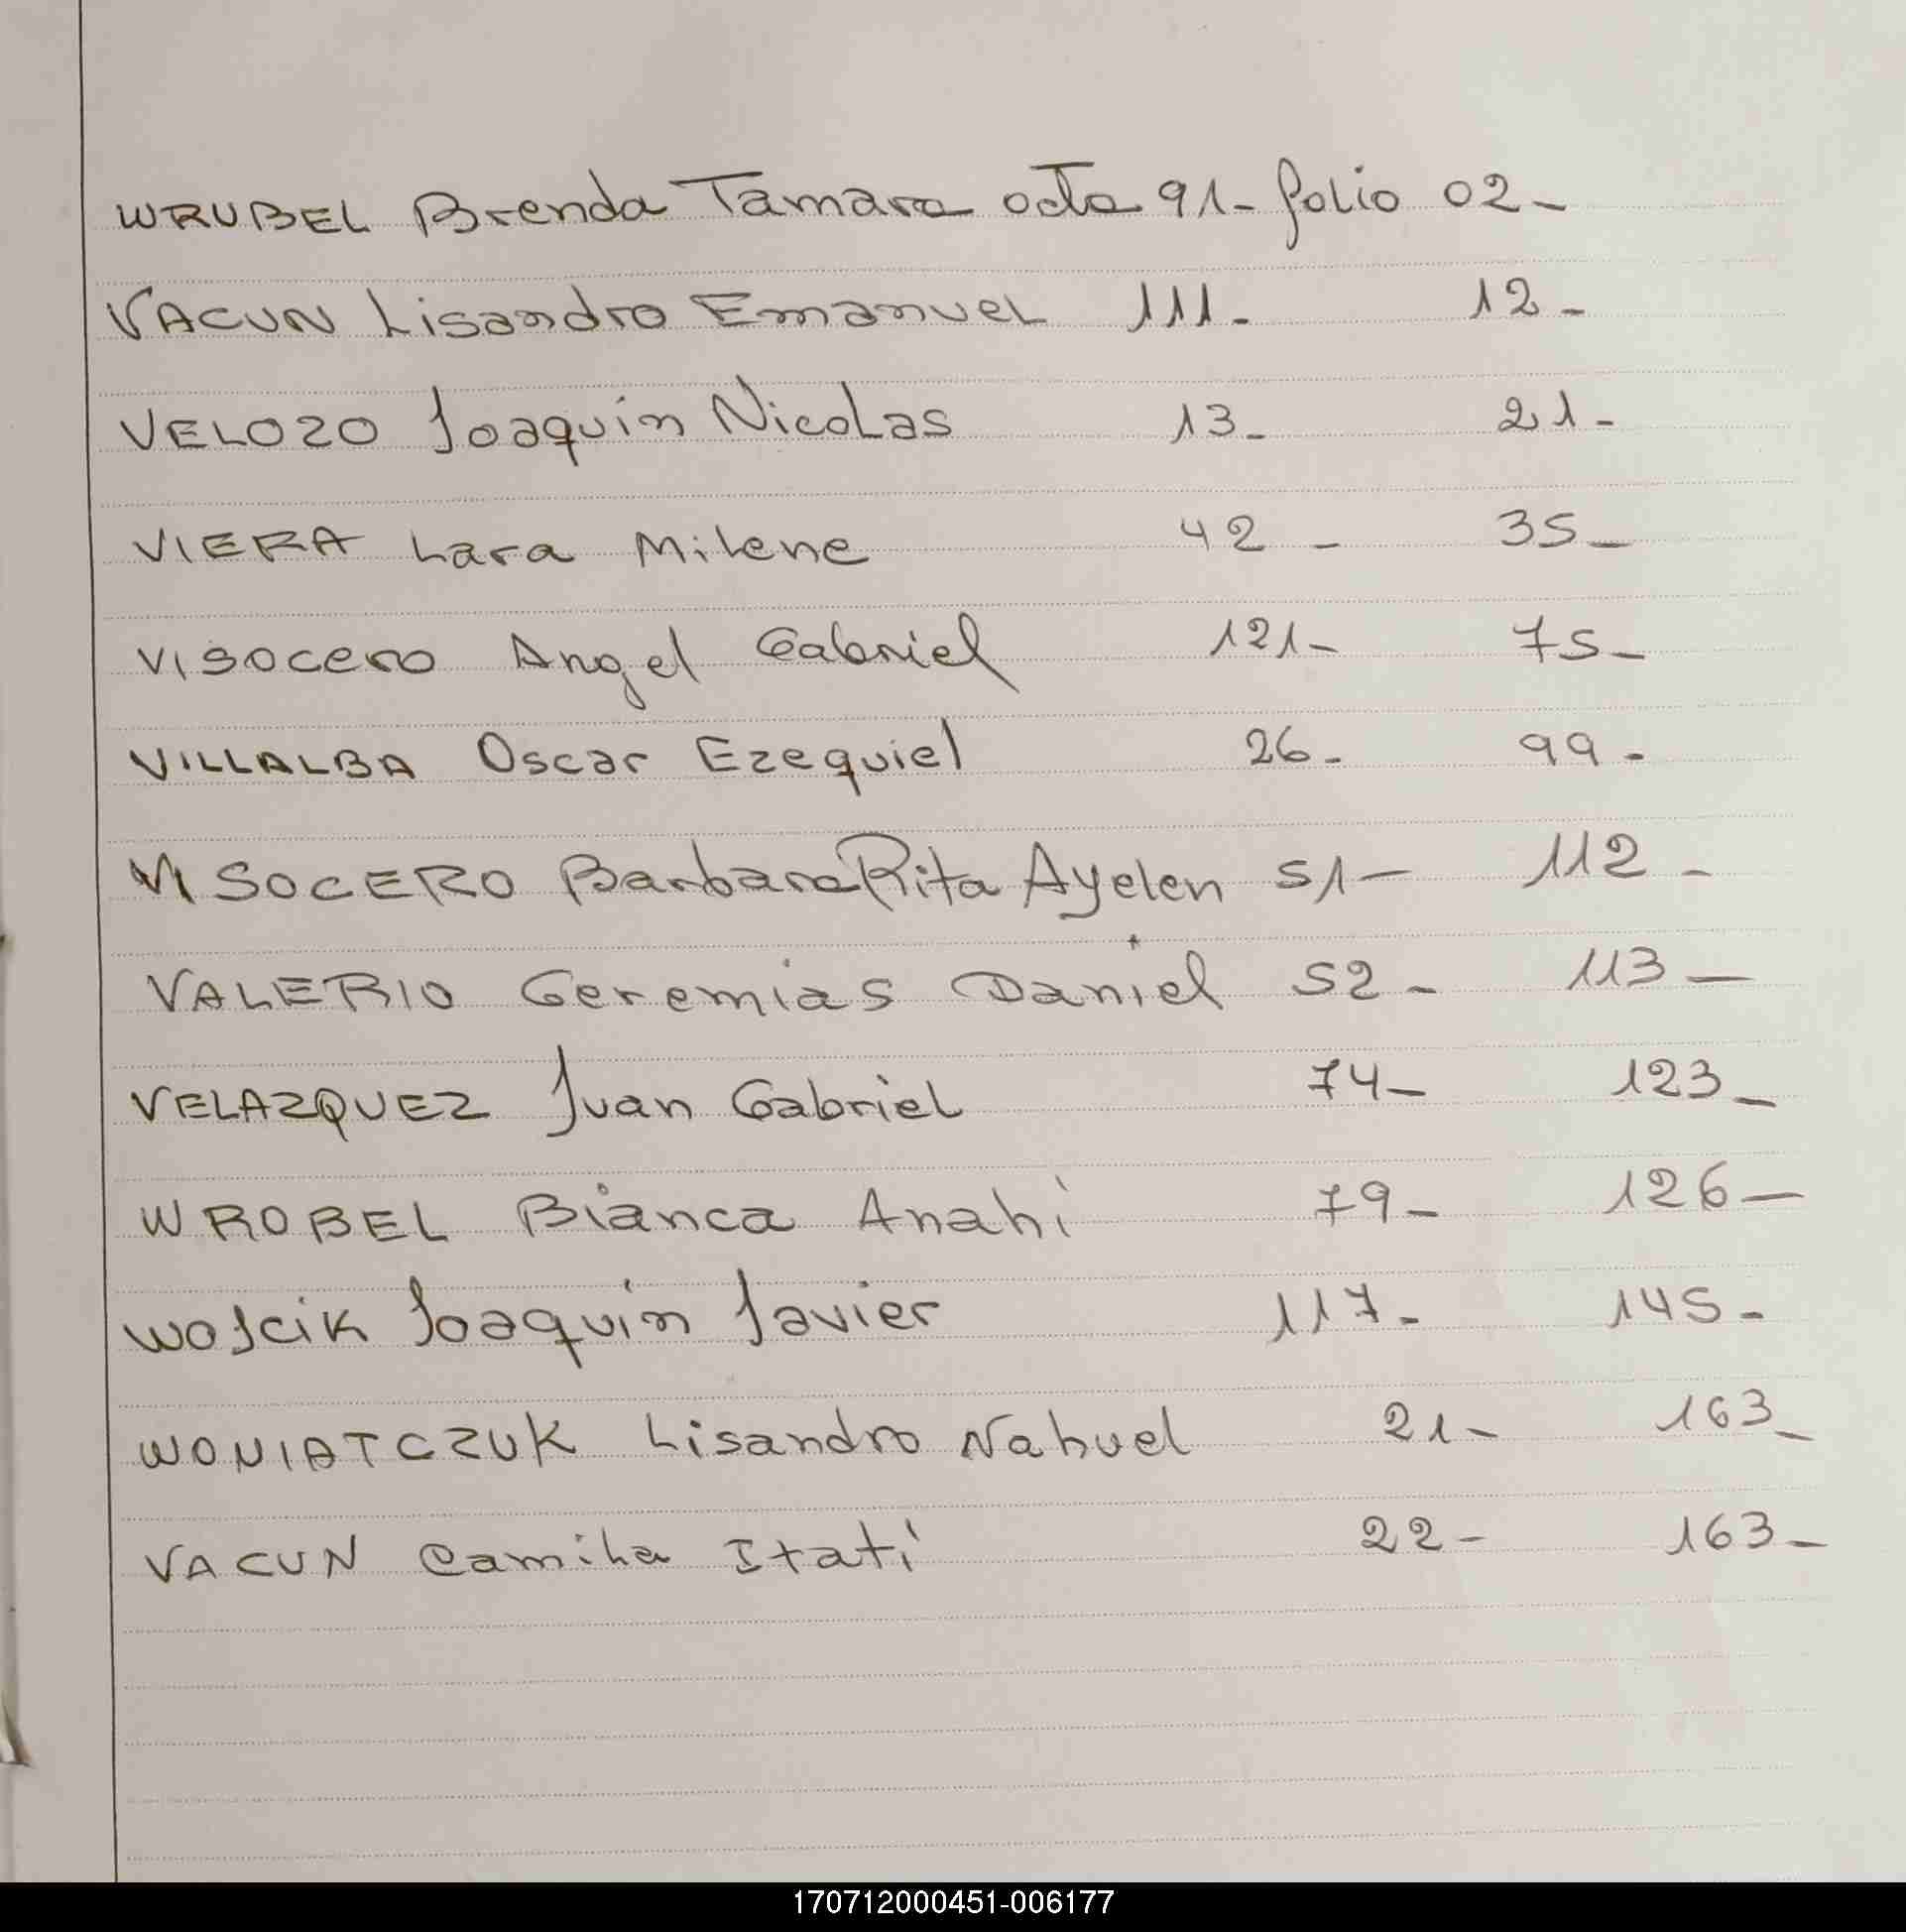 WRUBEL Brenda Tamara acta 91- folio 02-
VACUN Lisandro Emanuel 111- 12-
VELOZO Joaquín Nicolas 13- 21-
VIERA Lara Milene 42- 35-
VISOCERO Angel Gabriel 121- 75-
VILLALBA Oscar Ezequiel 26- 99-
VISOCERO Barbara Rita Ayelen 51- 112-
VALERIO Geremías Daniel 52- 113-
VELAZQUEZ Juan Gabriel 74- 123-
WROBEL Bianca Anahí 79- 126-
WOJCIK Joaquín Javier 117- 145-
WONIATCZUK Lisandro Nahuel 21- 163-
VACUN Camila Itatí 22- 163-
170712000451-006177